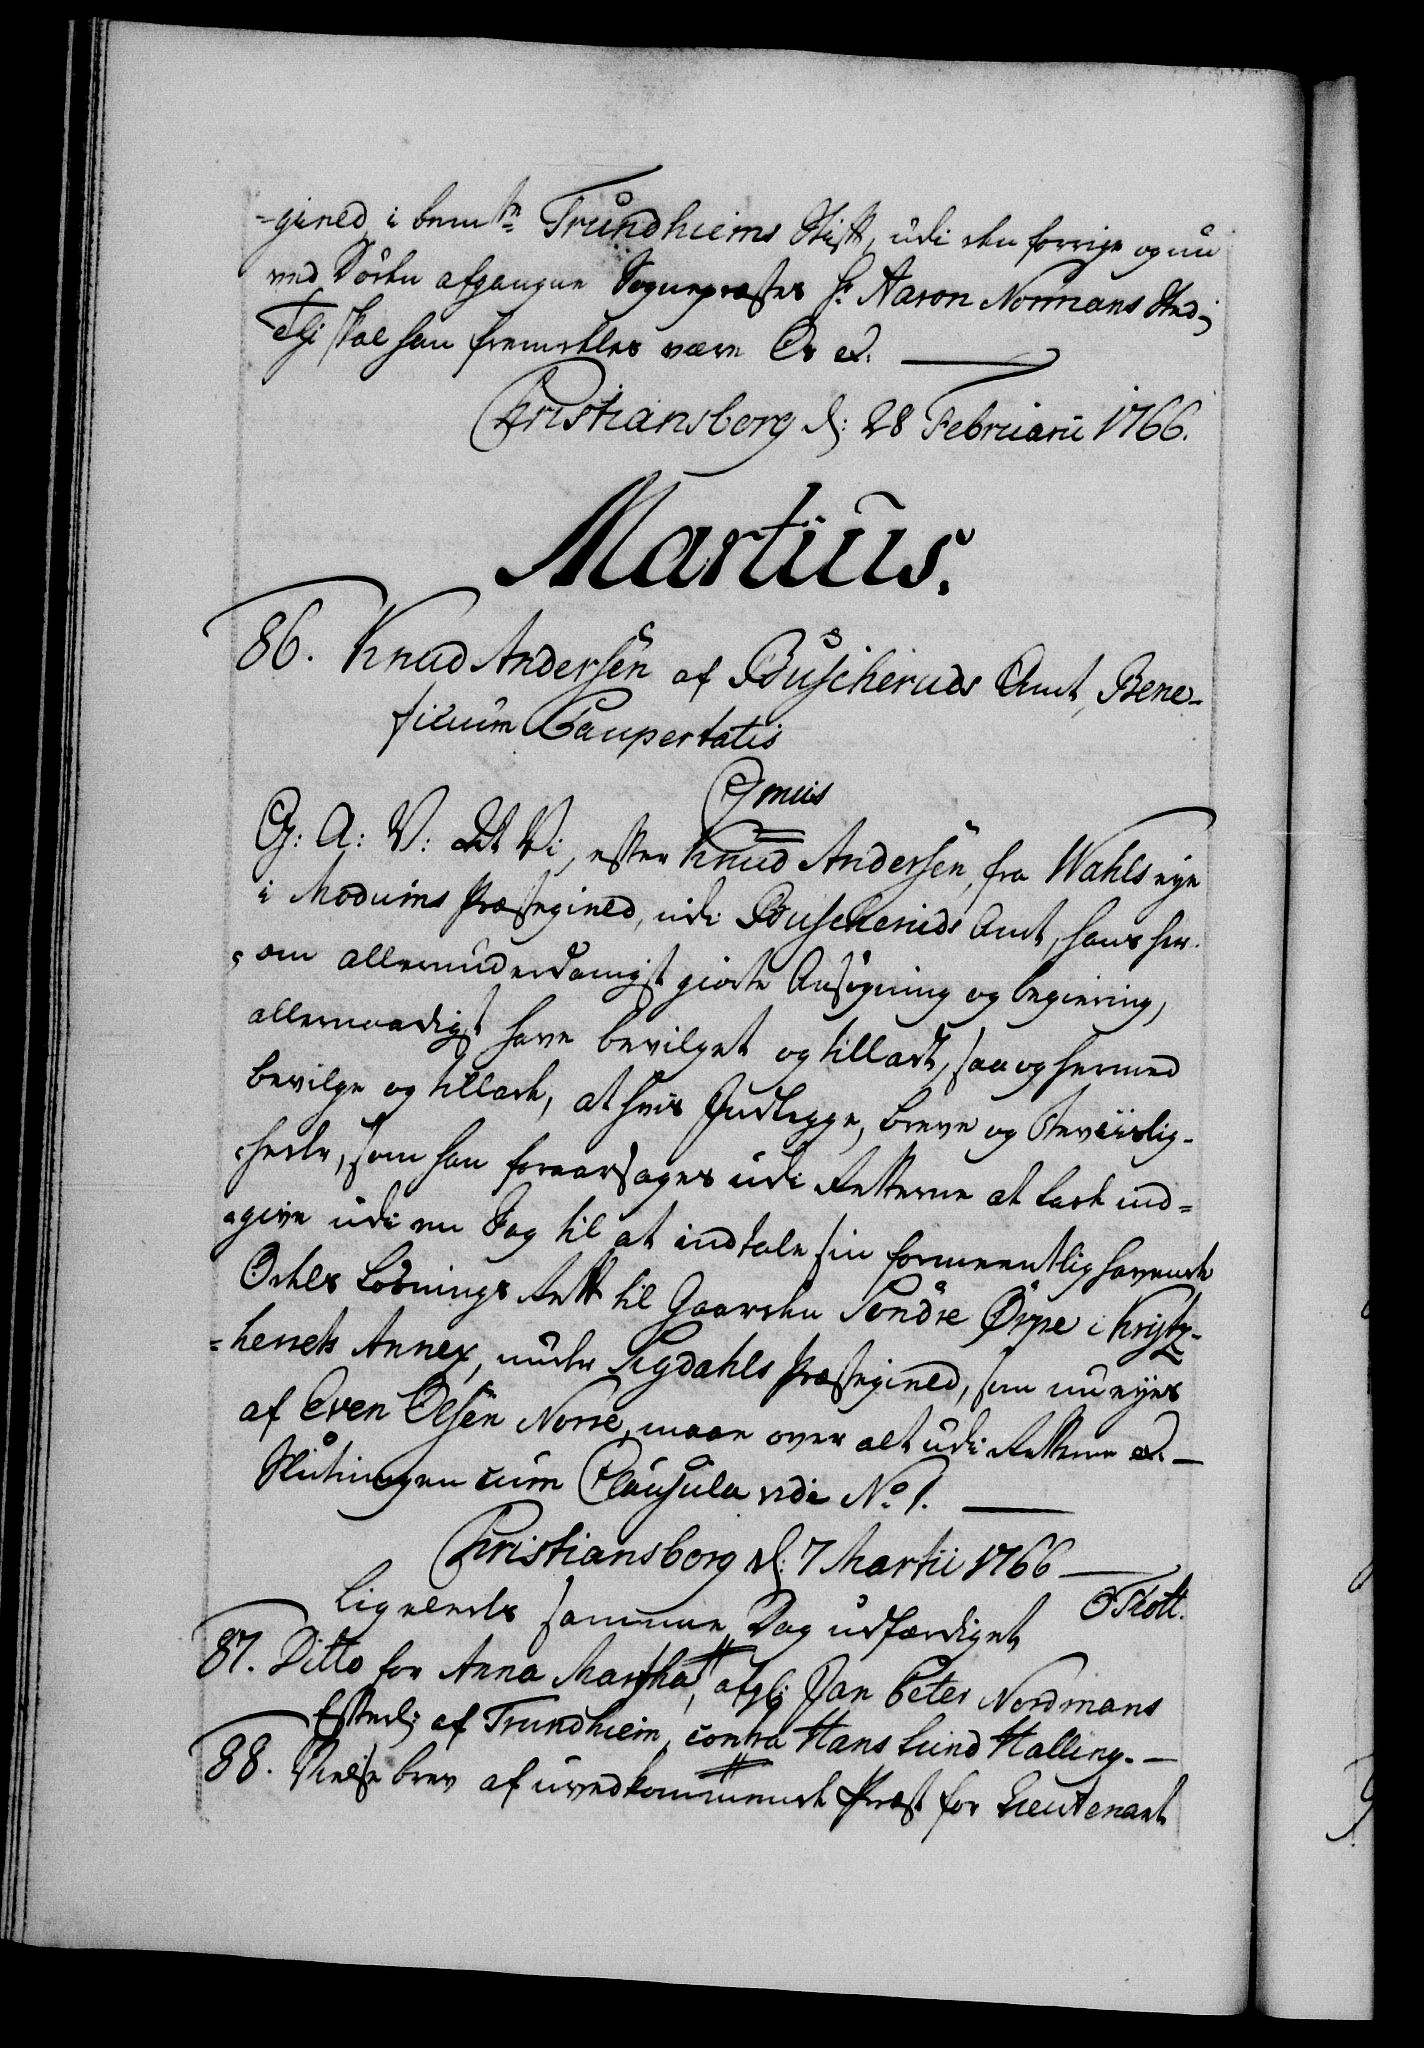 -gield i bemte Trundhiems Stift, udi den forrige og nu
ved Døden afgangne Sognepræstes Hr Aaron Normans Sted,
Thi skal han fremdeles være Os etc.
Christiansborg d: 28 Februarii 1766.
Martius.
86. Knud Andersen af Buscheruds Amt, Bene-
ficium Paupertatis
Gratis
G: A: V: at Vi, efter Knud Andersen, fra Wahls eye
i Modums Præstegield, udi Buscheruds Amt, hans her-
-om allerunderdanigst giorte Ansøgning og begiering,
allernaadigst have bevilget og tilladt, saa og hermed
bevilge og tillade, at hvis Indlegge, breve og Beviislig-
-heder, som han foraarsages udi Retterne at lade ind-
-give udi en Sag til at indtale sin formeentlig havende
Odels Løsnings Rett til Gaarden Søndre Øype i Krydtz-
-herrets Annex, under Sigdahls Præstegield, som nu eyes
af Even Olsen Norre, maae over alt udi Retterne etc.
Slutningen cum Clausula vide No 1.
Christiansborg d: 7 Martii 1766
O Thott.
Ligeledes samme Dag udfærdiget
87. Ditto for Anna Martha, afg: Jan Peter Nordmans
Efterl: af Trundhiem, contra Hans Lund Halling.
88. Vielse brev af uvedkommende Præst for Lieutenant